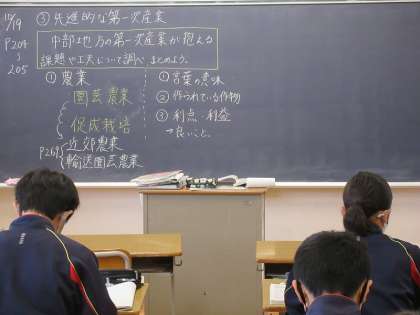 10/19
③先進的な第一次産業
P204
〜
205
中部地方の第一次産業が抱える
課題や工夫について調べ、まとめよう。
①農業
園芸農業
促成栽培
P269
近郊農業
輸送園芸農業
①言葉の意味
②作られている作物
③利点・利益
→良いこと。